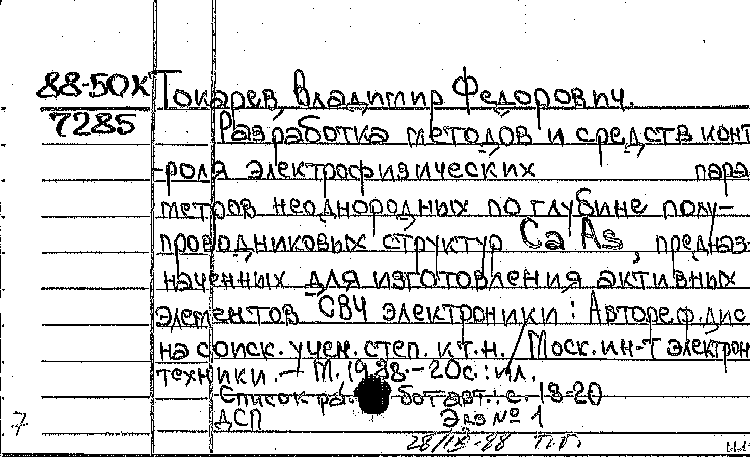 88-50X Токарев, Владимир Федорович.
7285 Разработка методов и средств конт
роля электрофизических пара
метров неоднородных по глубине полу-
проводниковых структур Ca As, предназ-
наченных для изготовления активных
элементов СВЧ электроники: Автореф. дис
на соиск. учен. степ. к.т.н. / Моск. ин-т электрон
техники. - М. 1988. - 20 с.: ил.
Список работ авт.: с. 18-20
ДСП Экз № 1
7 88